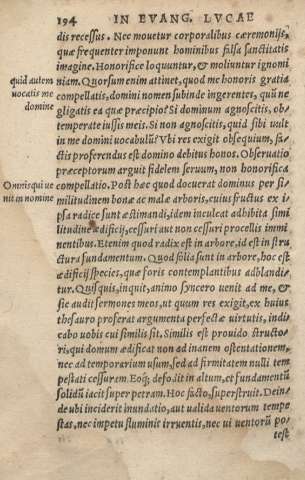 194 IN EVANG. LVCAE
dis recessus. Nec mouetur corporalibus cæremonijs,
quæ frequenter imponunt hominibus falsa sanctitatis
imagine. Honorifice loquuntur, & moliuntur ignomi
quid autem
uocatis me
domine
niam. Quorsum enim attinet, quod me honoris gratia
compellatis, domini nomen subinde ingerentes, quum ne
gligatis ea quæ præcipio? Si dominum agnoscitis, ob-
temperate iussis meis. Si non agnoscitis, quid sibi uult
in me domini uocabulum? Vbi res exigit obsequium, fa-
ctis proferendus est domino debitus honos. Obseruatio
præceptorum arguit fidelem seruum, non honorifica
Omnis qui ue
nit in nomine
compellatio. Post hæc quod docuerat dominus per si-
militudinem bonæ ac malæ arboris, cuius fructus ex i-
psa radice sunt æstimandi, idem inculcat adhibita simi
litudine ædificij, cessuri aut non cessuri procellis immi
nentibus. Etenim quod radix est in arbore, id est in stru
ctura fundamentum. Quod folia sunt in arbore, hoc est
ædificij species, quæ foris contemplantibus adblandi-
tur. Quisquis, inquit, animo syncero uenit ad me, &
sic audit sermones meos, ut quum res exigit, ex huius
thesauro proferat argumenta perfectæ uirtutis, indi-
cabo uobis cui similis sit. Similis est prouido structo-
ri, qui domum ædificat non ad inanem ostentationem,
nec ad temporarium usum, sed ad firmitatem nulli tem
pestati cessuram. Eoq; defodit in altum, et fundamentū
solidū iacit super petram. Hoc facto, superstruit. Dein-
de ubi inciderit inundatio, aut ualida uentorum tempe
stas, nec impetu fluminis irruentis, nec ui uentorū po
test